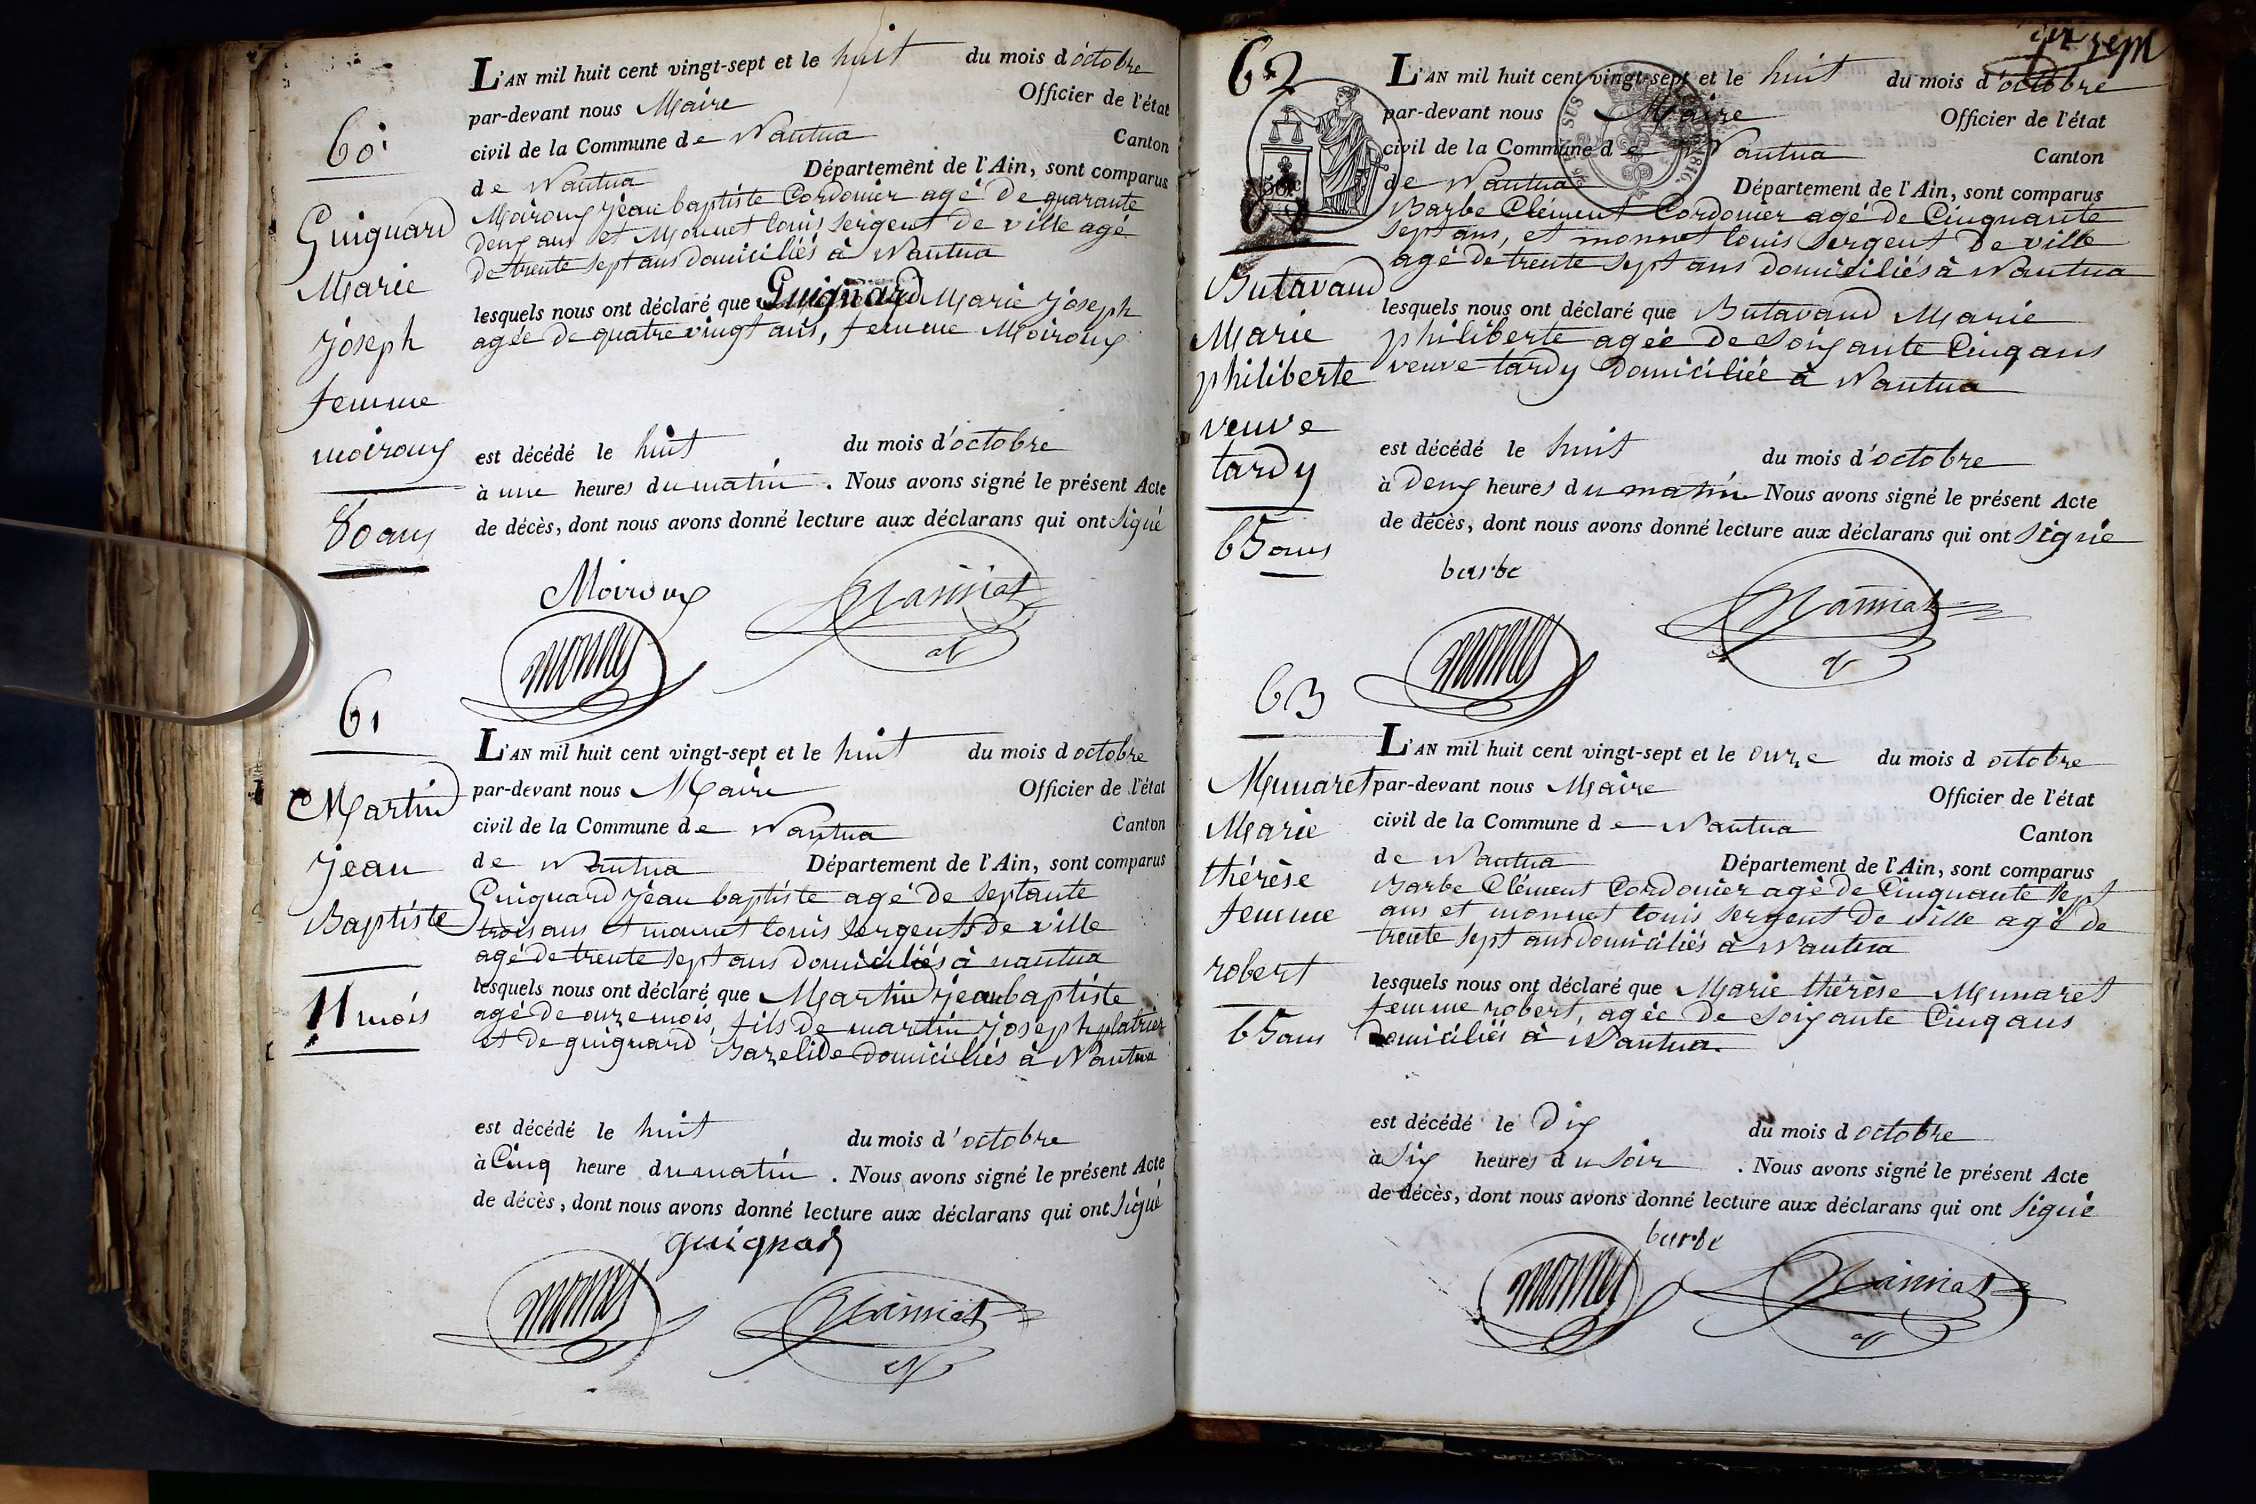 60
Guignard
Marie
joseph
femme
moiroux
80 ans
L'AN mil huit cent vingt-sept et le huit du mois d'octobre
par-devant nous Maire Officier de l'état
civil de la Commune de Nantua Canton
de Nantua Département de l'Ain, sont comparus
Moiroux jean baptiste Cordonier agé de quarante
deux ans et Monnet louis sergent de ville agé
de trente sept ans domiciliés à Nantua
lesquels nous ont déclaré que Guignard Marie joseph
agée de quatre vingt ans, femme Moiroux
est décédé le huit du mois d'octobre
à une heures du matin. Nous avons signé le présent Acte
de décès, dont nous avons donné lecture aux déclarans qui ont signé
Moiroux
monnet
61
Martin
jean
Baptiste
11 mois
L'AN mil huit cent vingt-sept et le huit du mois d octobre
par-devant nous Maire Officier de l'état
civil de la Commune de Nantua Canton
de Nantua Département de l'Ain, sont comparus
Guignard jean baptiste agé de septante
trois ans et monnet louis sergent de ville
agé de trente sept ans domiciliés à nantua
lesquels nous ont déclaré que Martin jean baptiste
agé de onze mois, fils de martin joseph platrier
et de guignard Bazelide domiciliés à Nantua
est décédé le huit du mois d'octobre
à Cinq heure du matin. Nous avons signé le présent Acte
de décès, dont nous avons donné lecture aux déclarans qui ont signé
guignard
monnet
62
Butavaud
Marie
philiberte
veuve
tardy
65 ans
L'AN mil huit cent vingt-sept et le huit du mois d'octobre
par-devant nous Maire Officier de l'état
civil de la Commune de Nantua Canton
de Nantua Département de l'Ain, sont comparus
Barbe Clément Cordonier agé de Cinquante
sept ans, et monnet louis sergent de ville
agé de trente sept ans domiciliés à Nantua
lesquels nous ont déclaré que Butavaud Marie
philiberte agée de soixante Cinq ans
veuve tardy domiciliée à Nantua
est décédé le huit du mois d'octobre
à deux heures du matin Nous avons signé le présent Acte
de décès, dont nous avons donné lecture aux déclarans qui ont signé
barbe
monnet
63
Munaret
Marie
thérèse
femme
robert
65 ans
L'AN mil huit cent vingt-sept et le onze du mois d octobre
par-devant nous Maire Officier de l'état
civil de la Commune de Nantua Canton
de Nantua Département de l'Ain, sont comparus
Barbe Clément Cordonier agé de Cinquante sept
ans et monnet louis sergent de ville agé de
trente sept ans domiciliés à Nantua
lesquels nous ont déclaré que Marie thérèse Munaret
femme robert, agée de soixante Cinq ans
domiciliés à Nantua.
est décédé le dix du mois d octobre
à six heures du soir. Nous avons signé le présent Acte
de décès, dont nous avons donné lecture aux déclarans qui ont signé
barbe
monnet